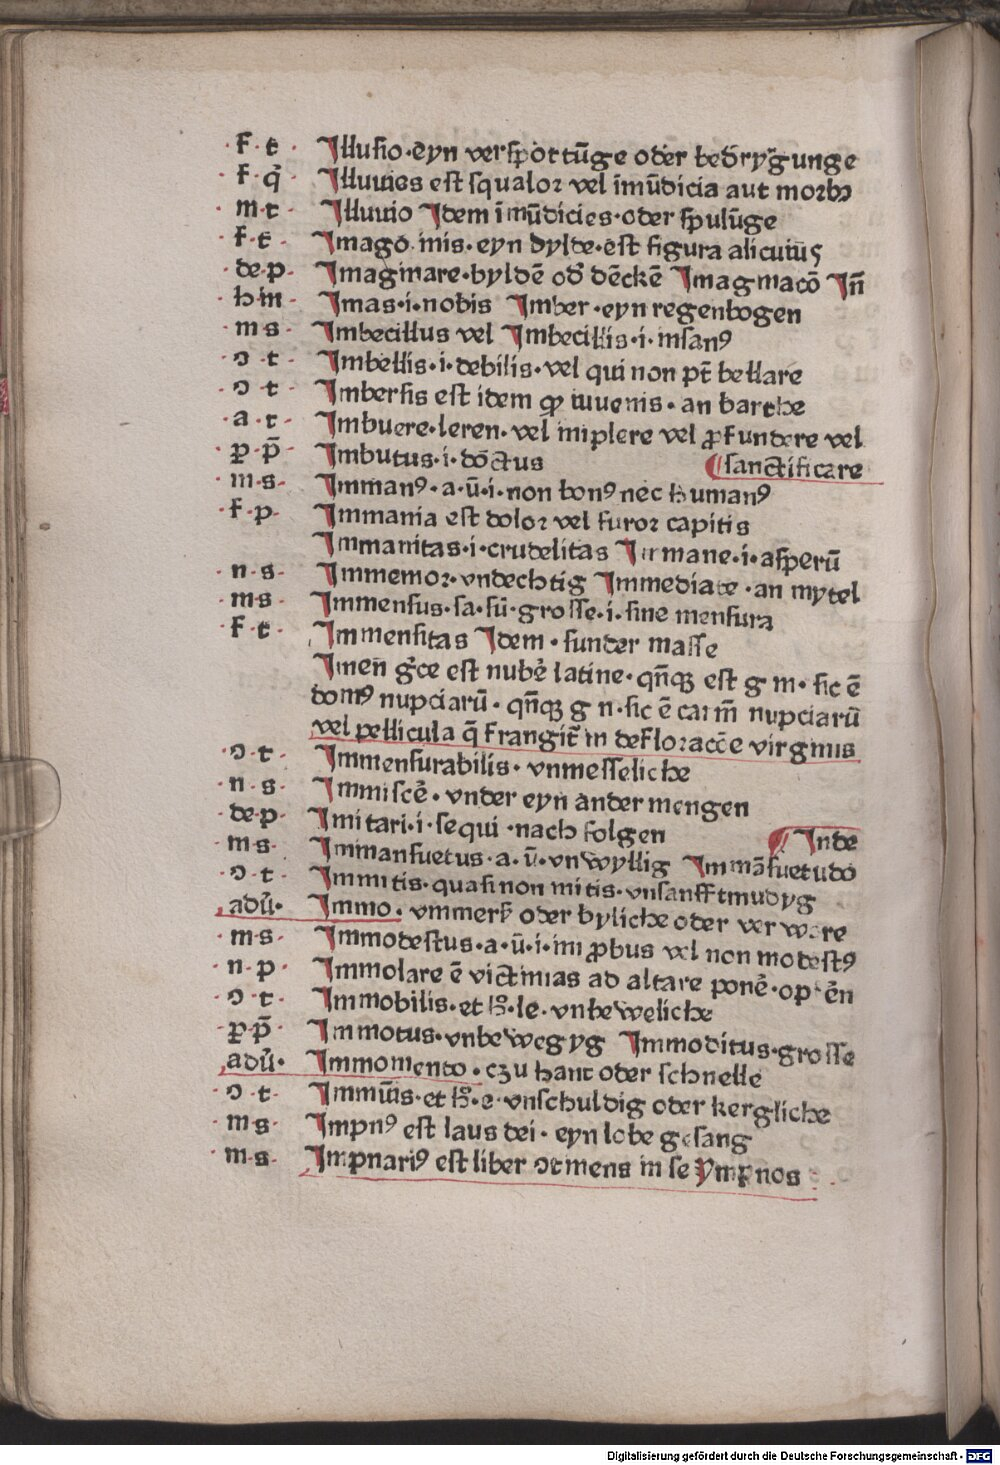 · f · t · Illusio · eyn verspottūge oder bedryͤgunge
· f · q̄ · Illuuies est squalor vel īmūdicia aut morbꝰ
· m · t · Illuuio Idem īmūdicies · oder spulūge
· f · t · Imago · inis · eyn bylde · est figura alicuiuꝰ
· de · p · Imaginare · byldē od' dēckē Imaginacō Iñ
· h · m · Imas · i · nobis Imber · eyn regenbogen
· m · s · Imbecillus vel Imbecillis · i · insanꝰ
· ↄ · t · Imbellis · i · debilis · vel qui non pt̄ bellare
· ↄ · t · Imberbis est idem qp iuuenis · an barthe
· a · t · Imbuere · leren · vel implere vel ꝓfundere vel
· p̱ · p̄ · Imbutus · i · doctus ¶ sanctificare
· m · s · Immanꝰ · a · ū · i · non bonꝰ nec humanꝰ
· f · p · Immania est dolor vel furor capitis
Immanitas · i · crudelitas Immane · i · asperū
· n · s · Immemor · vndechtig Immediate · an mytel
· m · s · Immensus · sa · sū · grosse · i · sine mensura
· f · t · Immensitas Idem · sunder masse
Imen g̃ce est nube' latine · qñqꝫ est g m · sic ē
domꝰ nupciarū · qñqꝫ g n · sic ē carm̄ nupciarū
vel pellicula q̄ frangit̄ in defloraccē e virginis
· ↄ · t · Immensurabilis · vnmesseliche
· n · s · Immisce' · vnder eyn ander mengen
· de · p · Imitari · i · sequi · nach folgen ¶ Inde
· m · s · Immansuetus · a · ū · vnwyllig Immāsuetudo
· ↄ · t · Immitis · quasi non mitis · vnsanfftmudyg
· adū · Immo · vmmer oder byliche oder ver ware
· m · s · Immodestus · a · ū · i · im ꝓbus vel non modestꝰ
· n · p · Immolare ē victimias ad altare pone' · op
· ↄ · t · Immobilis · et h̄ · le · vnbeweliche
· p̱ · p̄ · Immotus · vnbewegyg Immoditus · grosse
· adū · Immomento · cꝫu hant oder schnelle
· ↄ · t · Immūis · et h̄ · e · vnschuldig oder kergliche
· m · s · Impnꝰ est laus dei · eyn lobe gesang
· m · s · Impnariꝰ est liber ↄtinens in se ympnos
Digitalisierung gefördert durch die Deutsche Forschungsgemeinschaft - DFG